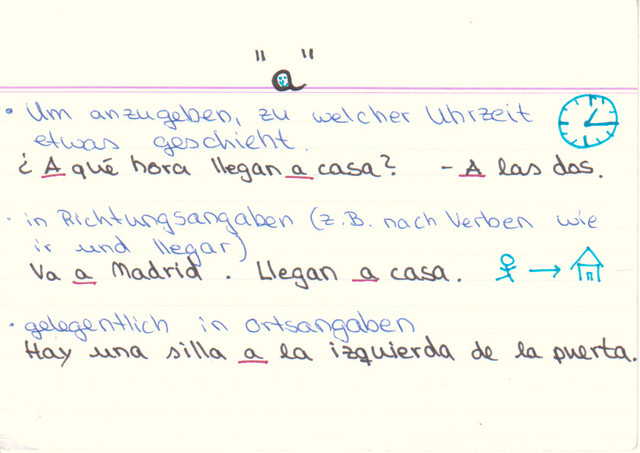 "a"
• Um anzugeben, zu welcher Uhrzeit
etwas geschieht.
¿A qué hora llegan a casa? - A las dos.
· in Richtungsangaben (z.B. nach Verben wie
ir und llegar)
Va a Madrid. Llegan a casa.
· gelegentlich in Ortsangaben
Hay una silla a la izquierda de la puerta.